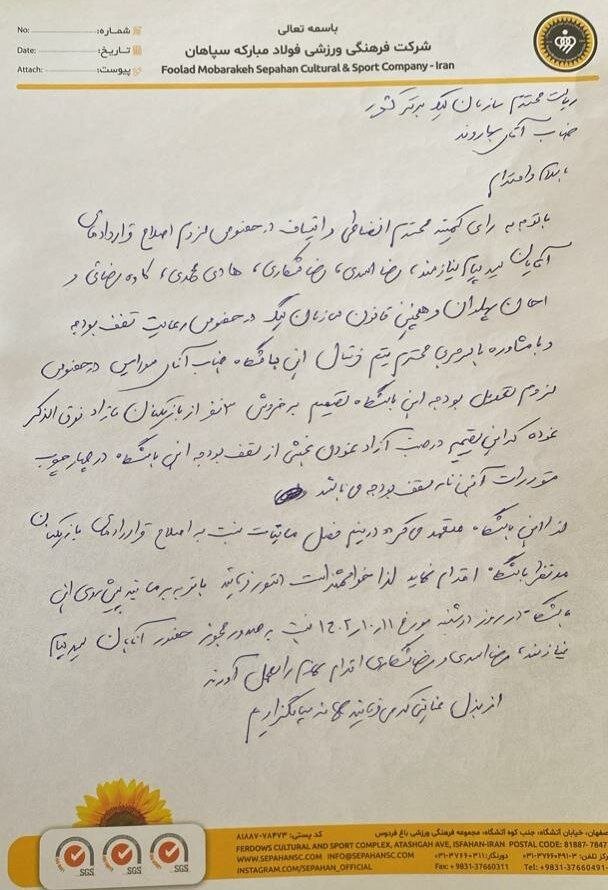 باسمه تعالی
شرکت فرهنگی ورزشی فولاد مبارکه سپاهان
Foolad Mobarakeh Sepahan Cultural & Sport Company - Iran
No: شماره:
Date: تاریخ:
Attach: پیوست:
ریاست محترم سازمان لیگ برتر کشور
جناب آقای سهاروند
با سلام و احترام
باتوجه به رای کمیته محترم انضباطی و استیناف در خصوص لزوم اصلاح قراردادهای
آقایان سید پیام نیازمند، رضا اسدی، رضا شکاری، هادی محمدی، کاوه رضائی و
احسان پهلوان و همچنین قانون سازمان لیگ در خصوص رعایت سقف بودجه
و با مشاوره با سرمربی محترم تیم فوتبال این باشگاه جناب آقای مورایس در خصوص
لزوم تعدیل بودجه این باشگاه تصمیم به فروش ۳ نفر از بازیکنان مازاد فوق الذکر
نموده که این تصمیم درصدد آزاد نمودن بخشی از سقف بودجه این باشگاه در چهارچوب
مقررات آئین نامه سقف بودجه می باشد
لذا این باشگاه متعهد می گردد در نیم فصل مابقی نسبت به اصلاح قراردادهای بازیکنان
مد نظر باشگاه اقدام نماید لذا خواهشمند است دستور فرمائید باتوجه به برنامه پیش روی این
باشگاه در روز دوشنبه مورخ ۱۴۰۲/۱۰/۱۱ نسبت به صدور مجوز حضور آقایان سید پیام
نیازمند، رضا اسدی و رضا شکاری اقدام لازم را بعمل آورند
از بذل عنایتی که می فرمائید سپاسگزاریم
اصفهان، خیابان آتشگاه، جنب کوه آتشگاه، مجموعه فرهنگی ورزشی باغ فردوس کد پستی: ۷۸۴۷۳-۸۱۸۷۷
FERDOWS CULTURAL AND SPORT COMPLEX, ATASHGAH AVE, ISFAHAN-IRAN POSTAL CODE: 81887- 7847
WWW.SEPAHANSC.COM INFO@SEPAHANSC.COM دورنگار: ۰۳۱-۳۷۶۶۰۳۱۱ مرکز تلفن: ۳-۰۳۱-۳۷۶۶۰۴۹۱
INSTAGRAM.COM/SEPAHAN_OFFICIAL Fax: +9831-37660311 Tel: +9831-37660491
SGS SGS SGS